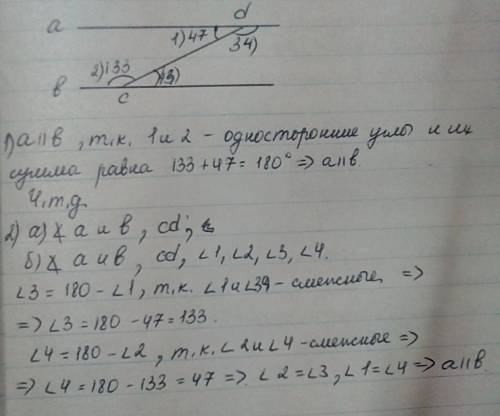 d
a
1) 47
34)
2) 133
в
с
1) a∥в, т.к. 1 и 2 - односторонние углы и их
сумма равна 133+47=180° => a∥в.
Ч.т.д.
2) а) ∡ a и в, cd;
б) ∡ a и в, cd, ∠1, ∠2, ∠3, ∠4.
∠3 = 180 - ∠1, т.к. ∠1 и ∠3 - смежные, =>
=> ∠3 = 180 - 47 = 133.
∠4 = 180 - ∠2, т.к. ∠2 и ∠4 - смежные =>
=> ∠4 = 180 - 133 = 47 => ∠2 = ∠3, ∠1 = ∠4 => a∥в.